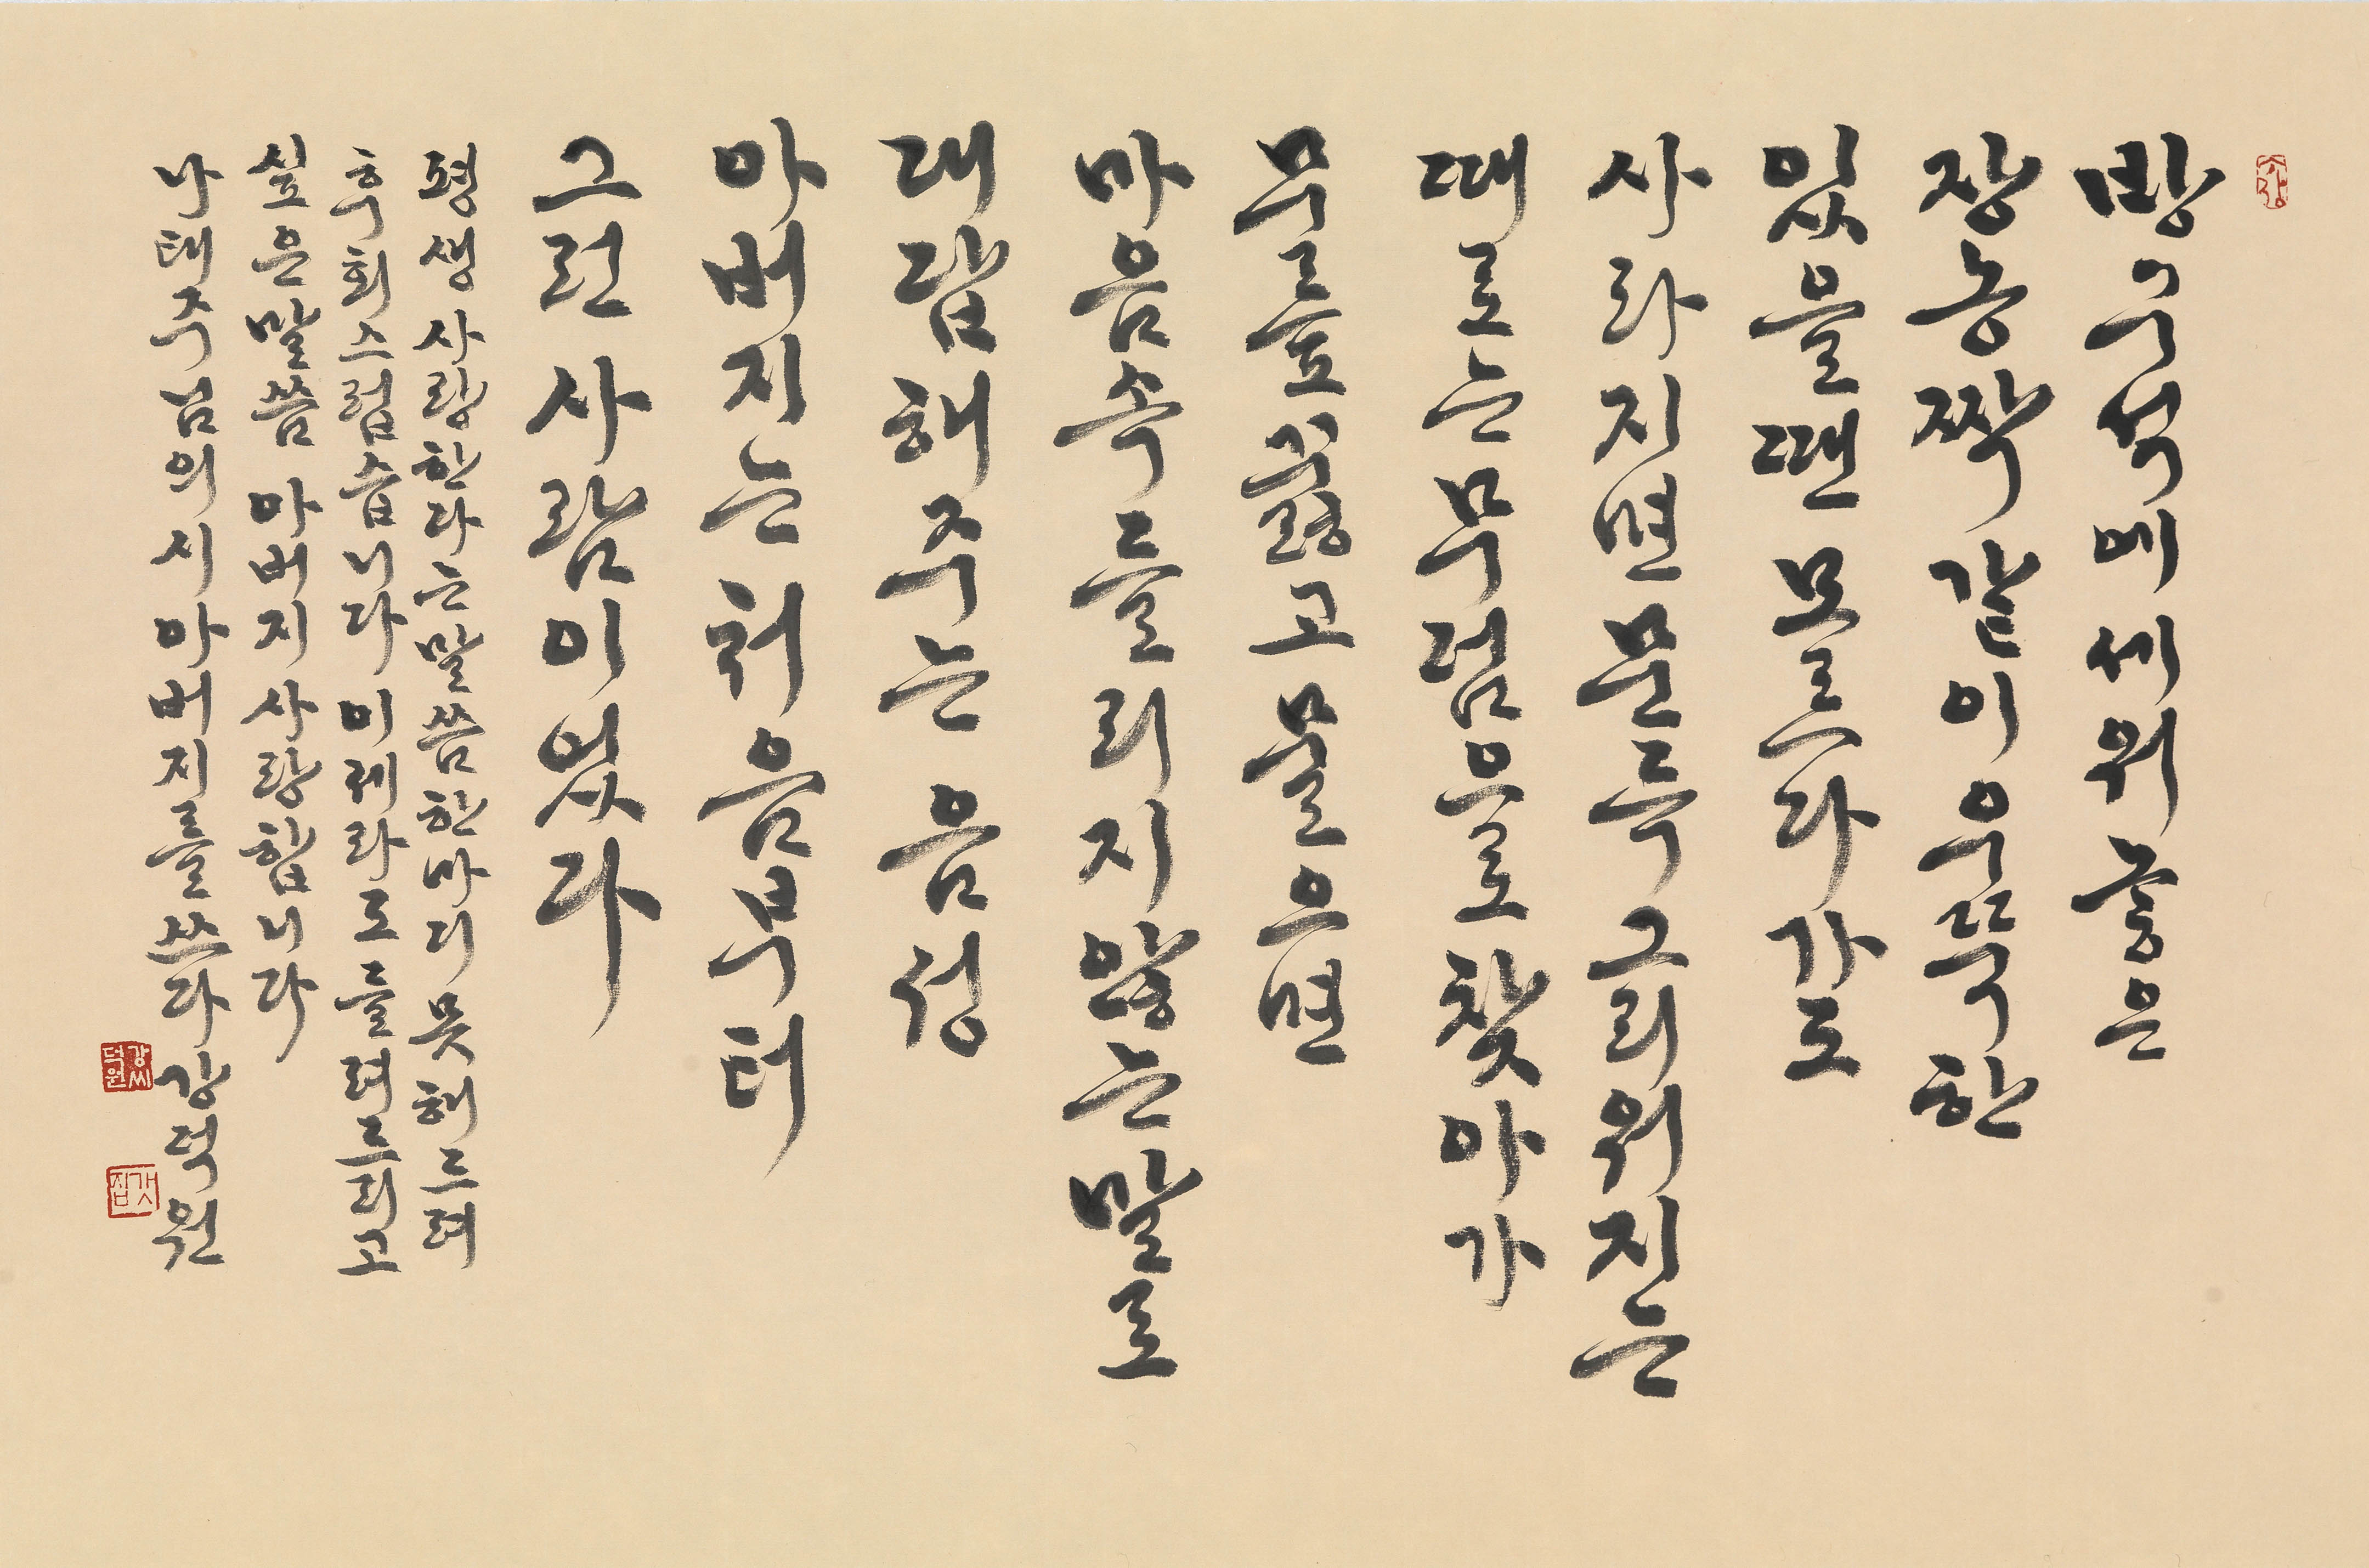 방구석에 세워 놓은
장농짝 같이 우뚝한
있을 땐 모르다가도
사라지면 문득 그리워지는
때로는 무덤으로 찾아가
무릎 꿇고 물으면
마음속 들리지 않는 말로
대답해 주는 음성
아버지는 처음부터
그런 사람이었다
평생 사랑한다는 말씀 한마디 못해드려
후회스럽습니다 이제라도 들려드리고
싶은 말씀 아버지 사랑합니다
나태주님의 시 아버지를 쓰다 강덕원
강씨덕원